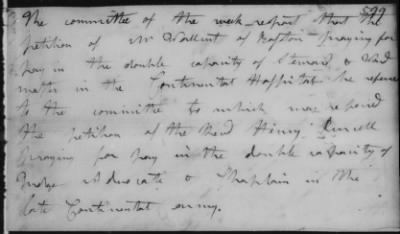 599
The committee of the week report that the
petition of Mr of praying for
pay in the double capacity of Steward & Ward
master in the Continental Hospital be referred
to the committee to which was referred
the petition of the Revd Henry Purcell
praying for pay in the double capacity of
Judge Advocate & Chaplain in the
late Continental army.